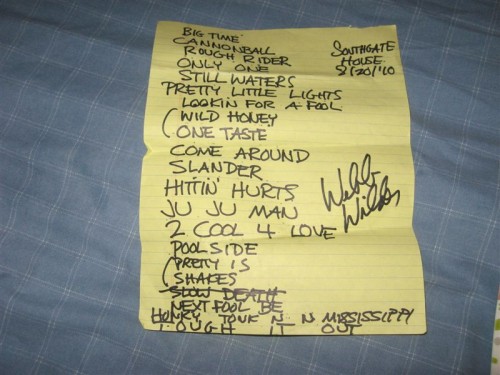 BIG TIME
CANNONBALL
ROUGH RIDER
ONLY ONE
STILL WATERS
PRETTY LITTLE LIGHTS
LOOKIN FOR A FOOL
WILD HONEY
ONE TASTE
COME AROUND
SLANDER
HITTIN' HURTS
JU JU MAN
2 COOL 4 LOVE
POOLSIDE
PRETTY IS
SHAKES
SLOW DEATH
NEXT FOOL BE
HONKY TONK N N MISSISSIPPI
TOUGH IT OUT
SOUTHGATE
HOUSE
8/20/'10
Webb
Wilder